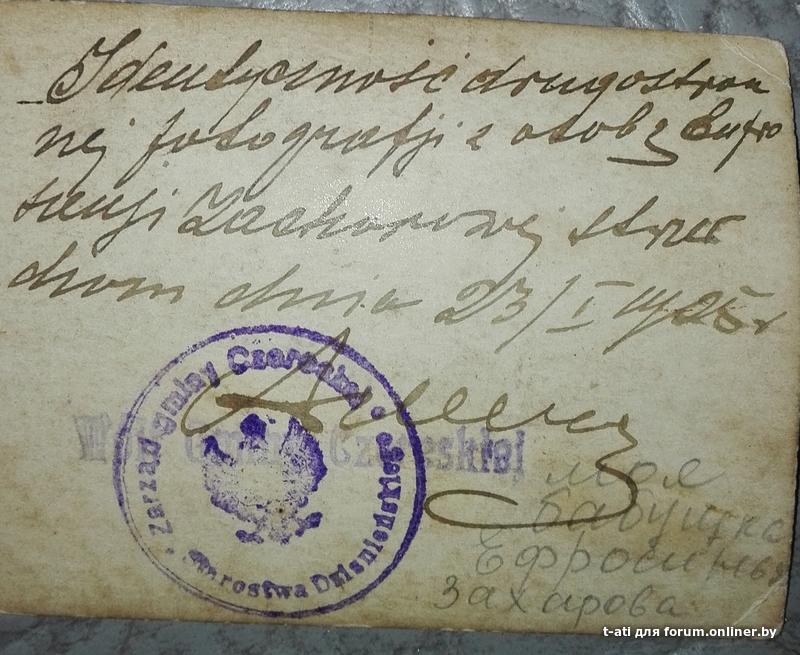 Identyczność drugostron
nej fotografji z osobą Eufro
zynji Zacharowej stwier
dzam dnia 23/I 1925 r
Zarząd gminy Czereskiej
Starostwa Dziśnieńskiego
Wójt Gminy Czereskiej
моя
бабушка
Ефросинья
Захарова
t-ati для forum.onliner.by